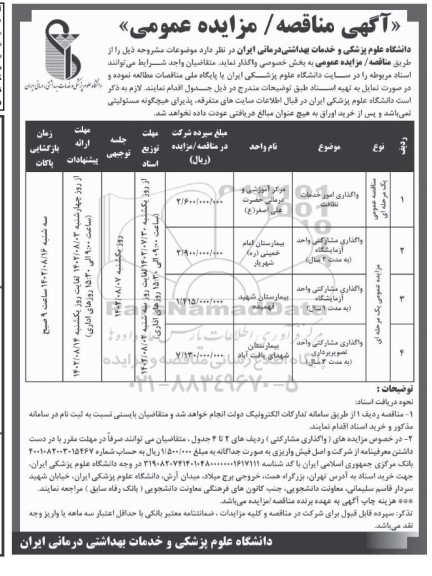 «آگهی مناقصه/ مزایده عمومی»
دانشگاه علوم پزشکی و خدمات بهداشتی درمانی ایران
دانشگاه علوم پزشکی و خدمات بهداشتی‌درمانی ایران در نظر دارد موضوعات مشروحه ذیل را از
طریق مناقصه/ مزایده عمومی به بخش خصوصی واگذار نماید. متقاضیان واجد شرایط می‌توانند
اسناد مربوطه را در سایت دانشگاه علوم پزشکی ایران یا پایگاه ملی مناقصات مطالعه نموده و
در صورت تمایل به تهیه اسناد طبق توضیحات مندرج در ذیل جدول اقدام نمایند. لازم به ذکر
است دانشگاه علوم پزشکی ایران در قبال اطلاعات سایت های متفرقه، پذیرای هیچگونه مسئولیتی
نمی‌باشد و پس از خرید اوراق به هیچ عنوان مبالغ دریافتی عودت داده نخواهد شد.
ردیف
نوع
موضوع
نام واحد
مبلغ سپرده شرکت در مناقصه /مزایده (ریال)
مهلت توزیع اسناد
جلسه توجیهی
مهلت ارائه پیشنهادات
زمان بازگشایی پاکات
۱
مناقصه عمومی یک مرحله ای
واگذاری امور خدمات نظافت
مرکز آموزشی و درمانی حضرت علی اصغر(ع)
۲/۶۰۰/۰۰۰/۰۰۰
۲
مزایده عمومی یک مرحله ای
واگذاری مشارکتی واحد آزمایشگاه (به مدت ۲ سال)
بیمارستان امام خمینی (ره) شهریار
۲/۹۰۰/۰۰۰/۰۰۰
۳
واگذاری مشارکتی واحد آزمایشگاه (به مدت ۱ سال)
بیمارستان شهید فهمیده
۱/۴۱۵/۰۰۰/۰۰۰
۴
واگذاری مشارکتی واحد تصویربرداری (به مدت ۲ سال)
بیمارستان شهدای یافت آباد
۷/۱۳۰/۰۰۰/۰۰۰
از روز یکشنبه ۱۴۰۲/۰۷/۳۰ لغایت روز سه شنبه ۱۴۰۲/۰۸/۰۲ (ساعت ۹:۰۰ الی ۱۵:۳۰ روزهای اداری)
روز یکشنبه ۱۴۰۲/۰۸/۰۷
از روز چهارشنبه ۱۴۰۲/۰۸/۰۳ لغایت روز یکشنبه ۱۴۰۲/۰۸/۱۴ (ساعت ۹:۰۰ الی ۱۵:۳۰ روزهای اداری)
سه شنبه ۱۴۰۲/۰۸/۱۶ ساعت ۹ صبح
۰۲۱-۸۸۳۴۹۶۷۰-۵
توضیحات :
نحوه دریافت اسناد:
۱- مناقصه ردیف ۱ از طریق سامانه تدارکات الکترونیک دولت انجام خواهد شد و متقاضیان بایستی نسبت به ثبت نام در سامانه
مذکور و خرید اسناد اقدام نمایند.
۲- در خصوص مزایده های ( واگذاری مشارکتی ) ردیف های ۲ تا ۴ جدول ، متقاضیان می توانند صرفاً در مهلت مقرر با در دست
داشتن معرفینامه از شرکت و اصل فیش واریزی به صورت جداگانه به مبلغ ۱/۵۰۰/۰۰۰ ریال به حساب شماره ۴۰۰۱۰۸۲۰۰۳۰۱۵۴۶۷
بانک مرکزی جمهوری اسلامی ایران با کد شناسه در وجه دانشگاه علوم پزشکی ایران،
جهت خرید اسناد به آدرس تهران، بزرگراه همت، خروجی برج میلاد، میدان آرش، دانشگاه علوم پزشکی ایران، خیابان شهید
سردار قاسم سلیمانی، معاونت دانشجویی، جنب کانون های فرهنگی معاونت دانشجویی ( بانک رفاه سابق ) مراجعه نمایند.
*** هزینه چاپ آگهی به عهده برنده مناقصه/مزایده می‌باشد.
تذکر: سپرده قابل قبول برای شرکت در مناقصه و کلیه مزایدات ، ضمانتنامه معتبر بانکی با حداقل اعتبار سه ماهه یا واریز وجه
نقد می‌باشد.
دانشگاه علوم پزشکی و خدمات بهداشتی درمانی ایران